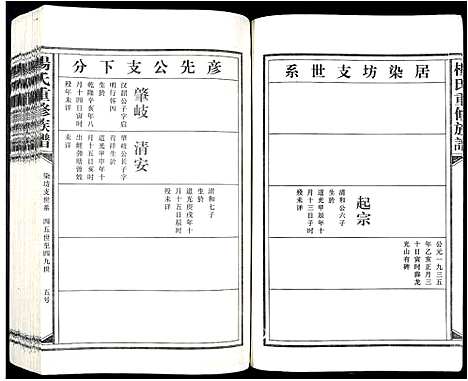 楊氏重修族譜
居染坊支世系
起宗
清和公六子
生於
道光甲辰年
月十三日子時
歿未詳
公元一九三五
年乙亥正月三
十日寅時葬龙
光山有碑
彦先公支下分
肇岐
汉韶公子字启
明行答四
生於
乾隆辛亥年八
月十四日寅时
歿年未详
清安
肇岐公長子字
首祥生於
道光甲申年十
来详
清和七子
生於
道光庚戌年十
月十五日辰时
歿未详
楊氏重修族譜
染坊支世系
四五世至四九世
五号